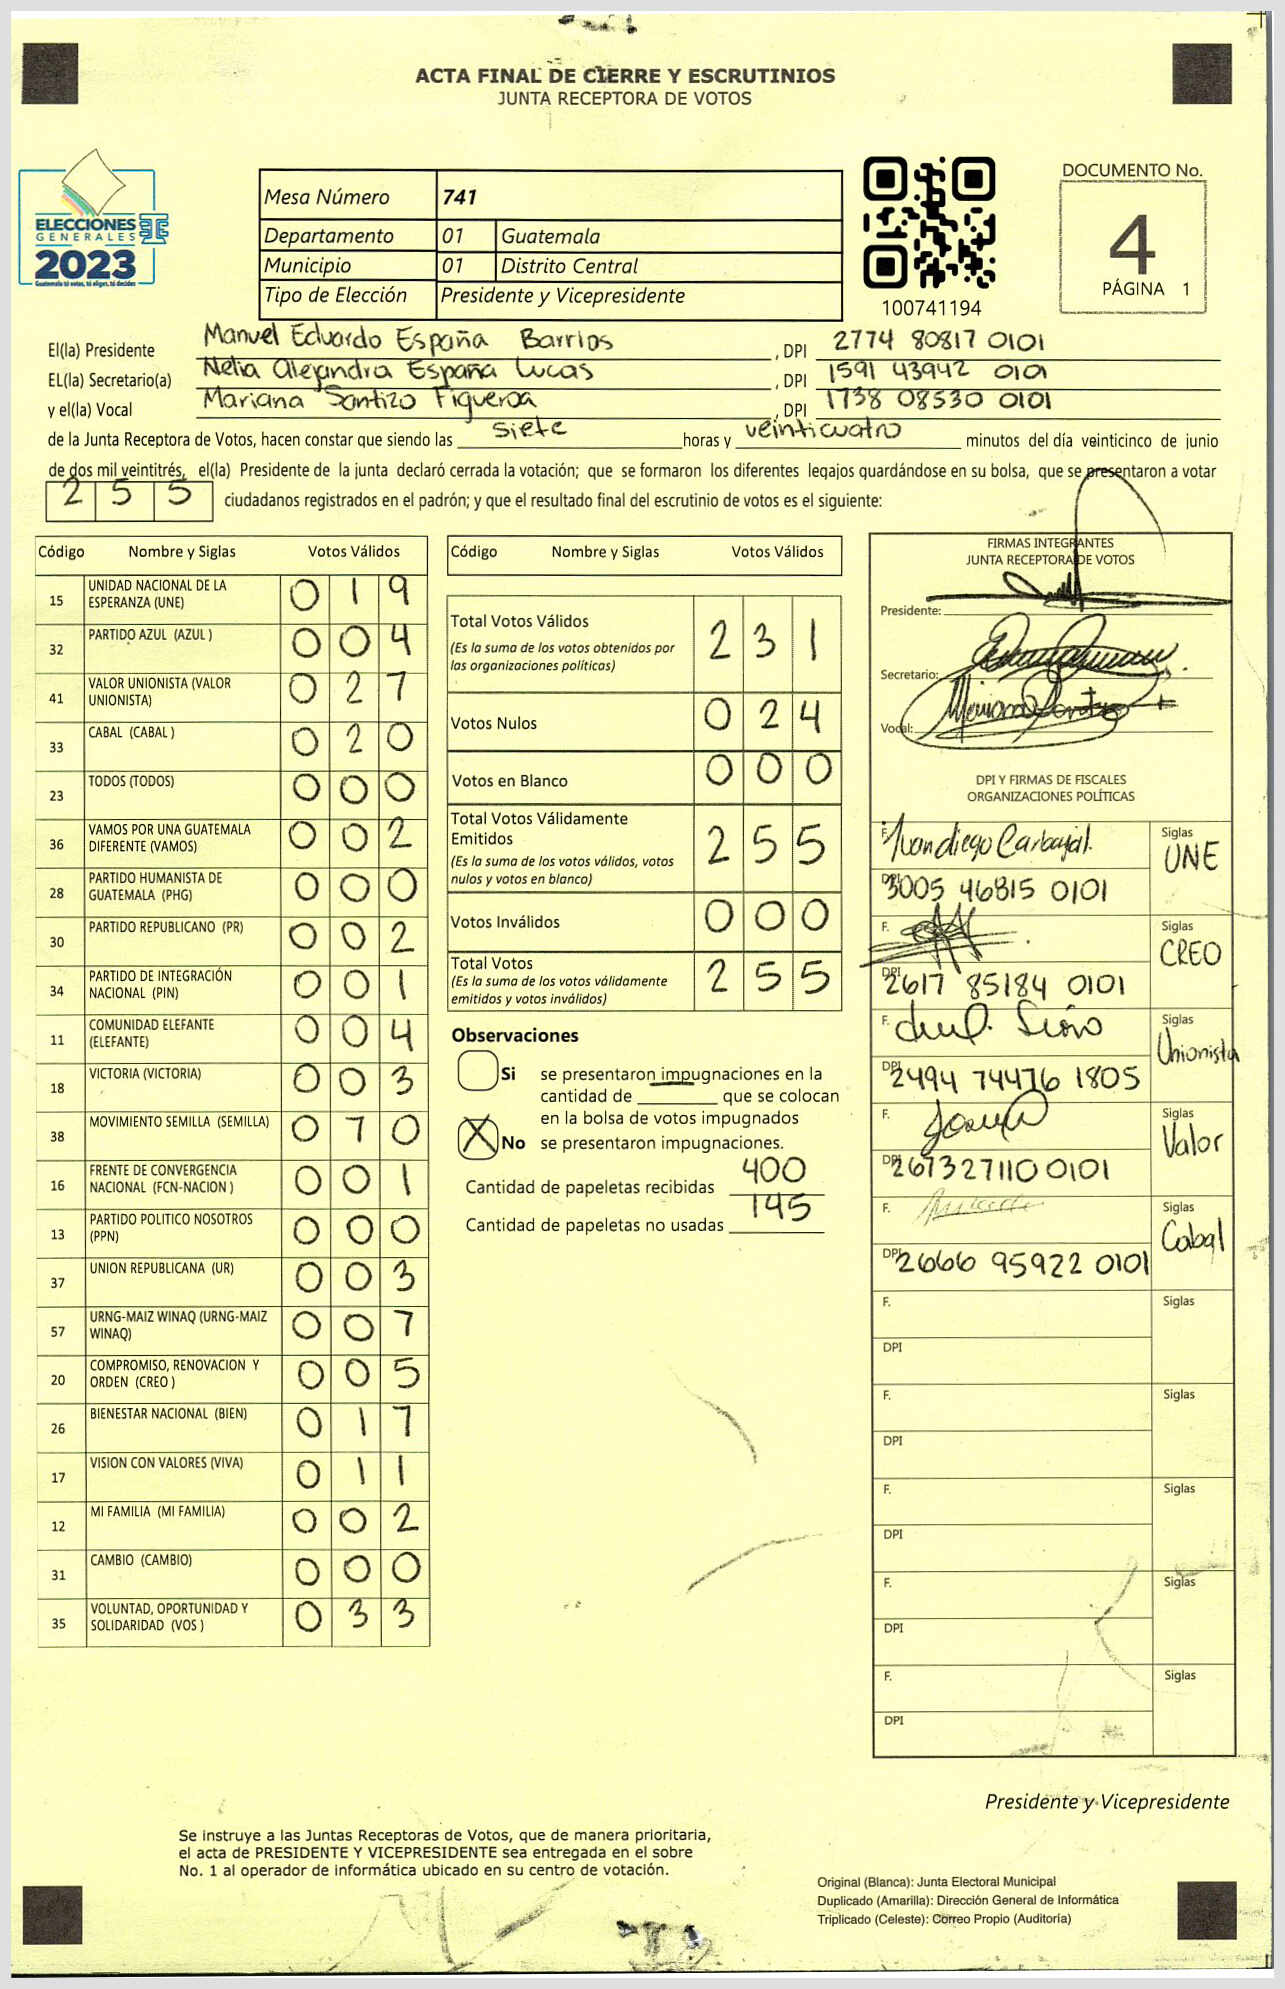 ACTA FINAL DE CIERRE Y ESCRUTINIOS
JUNTA RECEPTORA DE VOTOS
ELECCIONES
GENERALES
2023
Guatemala tú votas, tú eliges, tú decides
Mesa Número 741
Departamento 01 Guatemala
Municipio 01 Distrito Central
Tipo de Elección Presidente y Vicepresidente
100741194
DOCUMENTO No.
4
PÁGINA 1
El(la) Presidente Manuel Eduardo España Barrios , DPI 2774 80817 0101
EL(la) Secretario(a) Nelia Alejandra España Lucas , DPI 1591 43942 0101
y el(la) Vocal Mariana Santizo Figueroa , DPI 1738 08530 0101
de la Junta Receptora de Votos, hacen constar que siendo las siete horas y veinticuatro minutos del día veinticinco de junio
de dos mil veintitrés, el(la) Presidente de la junta declaró cerrada la votación; que se formaron los diferentes legajos guardándose en su bolsa, que se presentaron a votar
2 5 5 ciudadanos registrados en el padrón; y que el resultado final del escrutinio de votos es el siguiente:
Código Nombre y Siglas Votos Válidos
15 UNIDAD NACIONAL DE LA ESPERANZA (UNE) 0 1 9
32 PARTIDO AZUL (AZUL ) 0 0 4
41 VALOR UNIONISTA (VALOR UNIONISTA) 0 2 7
33 CABAL (CABAL ) 0 2 0
23 TODOS (TODOS) 0 0 0
36 VAMOS POR UNA GUATEMALA DIFERENTE (VAMOS) 0 0 2
28 PARTIDO HUMANISTA DE GUATEMALA (PHG) 0 0 0
30 PARTIDO REPUBLICANO (PR) 0 0 2
34 PARTIDO DE INTEGRACIÓN NACIONAL (PIN) 0 0 1
11 COMUNIDAD ELEFANTE (ELEFANTE) 0 0 4
18 VICTORIA (VICTORIA) 0 0 3
38 MOVIMIENTO SEMILLA (SEMILLA) 0 7 0
16 FRENTE DE CONVERGENCIA NACIONAL (FCN-NACION ) 0 0 1
13 PARTIDO POLITICO NOSOTROS (PPN) 0 0 0
37 UNION REPUBLICANA (UR) 0 0 3
57 URNG-MAIZ WINAQ (URNG-MAIZ WINAQ) 0 0 7
20 COMPROMISO, RENOVACION Y ORDEN (CREO ) 0 0 5
26 BIENESTAR NACIONAL (BIEN) 0 1 7
17 VISION CON VALORES (VIVA) 0 1 1
12 MI FAMILIA (MI FAMILIA) 0 0 2
31 CAMBIO (CAMBIO) 0 0 0
35 VOLUNTAD, OPORTUNIDAD Y SOLIDARIDAD (VOS ) 0 3 3
Código Nombre y Siglas Votos Válidos
Total Votos Válidos 2 3 1
(Es la suma de los votos obtenidos por
las organizaciones políticas)
Votos Nulos 0 2 4
Votos en Blanco 0 0 0
Total Votos Válidamente
Emitidos 2 5 5
(Es la suma de los votos válidos, votos
nulos y votos en blanco)
Votos Inválidos 0 0 0
Total Votos 2 5 5
(Es la suma de los votos válidamente
emitidos y votos inválidos)
Observaciones
Si se presentaron impugnaciones en la
cantidad de ________ que se colocan
en la bolsa de votos impugnados
X No se presentaron impugnaciones.
Cantidad de papeletas recibidas 400
Cantidad de papeletas no usadas 145
FIRMAS INTEGRANTES
JUNTA RECEPTORA DE VOTOS
Presidente:
Secretario:
Vocal:
DPI Y FIRMAS DE FISCALES
ORGANIZACIONES POLÍTICAS
F. Juandiego Carbajal. Siglas UNE
DPI 3005 46815 0101
F. Siglas CREO
DPI 2617 85184 0101
F. Siglas Unionista
DPI 2494 74476 1805
F. Siglas Valor
DPI 2673271100101
F. Siglas Cabal
DPI 2666 95922 0101
F. Siglas
DPI
F. Siglas
DPI
F. Siglas
DPI
F. Siglas
DPI
F. Siglas
DPI
Presidente y Vicepresidente
Se instruye a las Juntas Receptoras de Votos, que de manera prioritaria,
el acta de PRESIDENTE Y VICEPRESIDENTE sea entregada en el sobre
No. 1 al operador de informática ubicado en su centro de votación.
Original (Blanca): Junta Electoral Municipal
Duplicado (Amarilla): Dirección General de Informática
Triplicado (Celeste): Correo Propio (Auditoría)